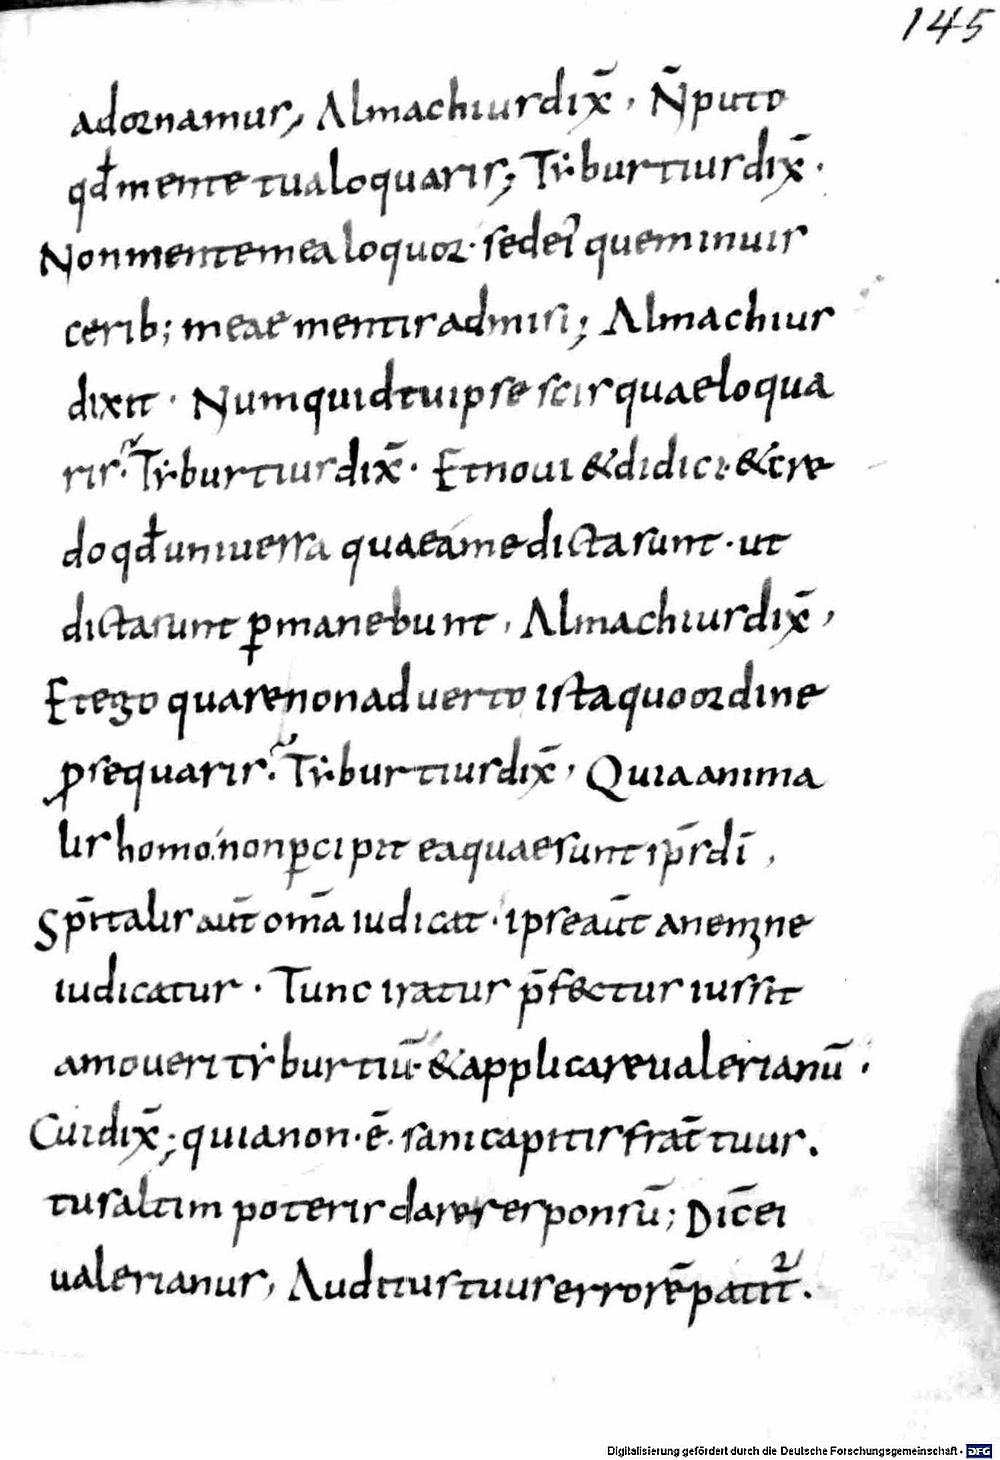 145
adornamus, Almachius dix̄, N̄ puto
qđ mente tua loquaris; Tẏburtius dix̄.
Non mente mea loquor. sed eı᾽ quem in uis
cerib; meae mentis admisi; Almachius
dixit. Numquid tu ipse scis quae loqua
ris? Tẏburtius dix̄. Et noui & didici. & cre
do qđ uniuersa quae a me dicta sunt. ut
dicta sunt ꝑmanebunt, Almachius dix̄,
Et ego quare non aduerto ista quo ordine
ꝓsequaris? Tẏburtius dix̄, Quia anima
lis homo. non ꝑcipit ea quae sunt sp̄s dī,
Sp̄italis aut̄ om̄a iudicat. ipse aut̄ a nemine
iudicatur. Tunc iratus p̄fectus iussit
amoueri tẏburtiū. & applicare ualerianū.
Cui dix̄; quia non. ē. sani capitis frat̄ tuus.
tu saltim poteris dare responsū; Dic̄ ei
ualerianus, Auditus tuus errorē patit᷑.
Digitalisierung gefördert durch die Deutsche Forschungsgemeinschaft - DFG